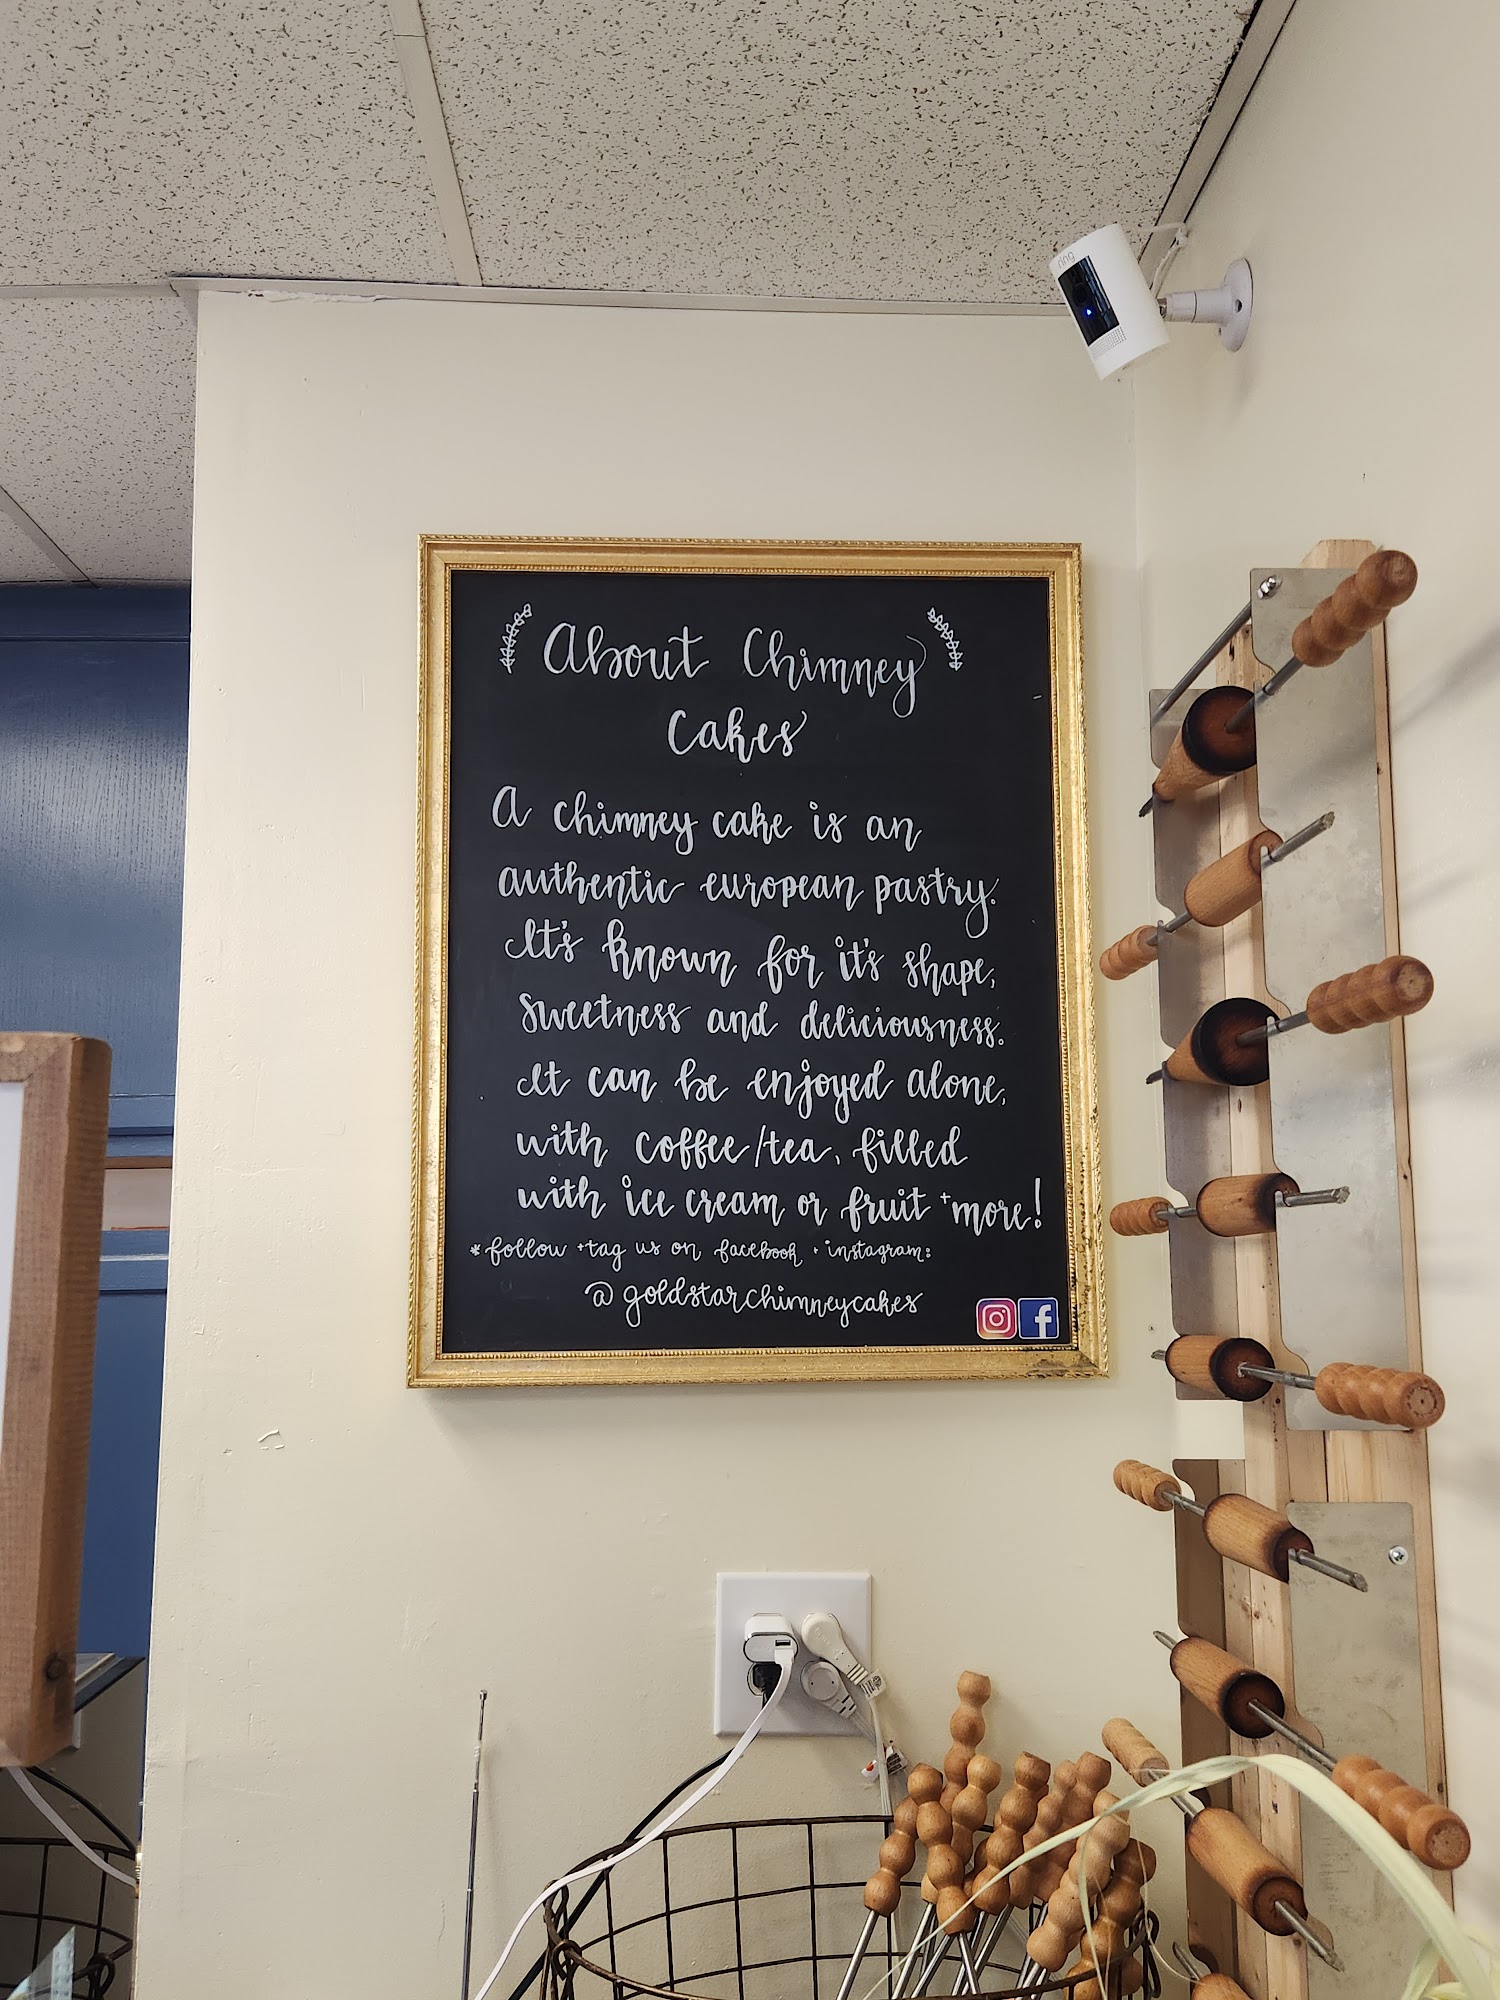 ring
About Chimney
Cakes
A chimney cake is an
authentic european pastry.
It's known for it's shape,
sweetness and deliciousness.
It can be enjoyed alone,
with coffee/tea, filled
with ice cream or fruit + more!
* follow + tag us on facebook + instagram:
@goldstarchimneycakes